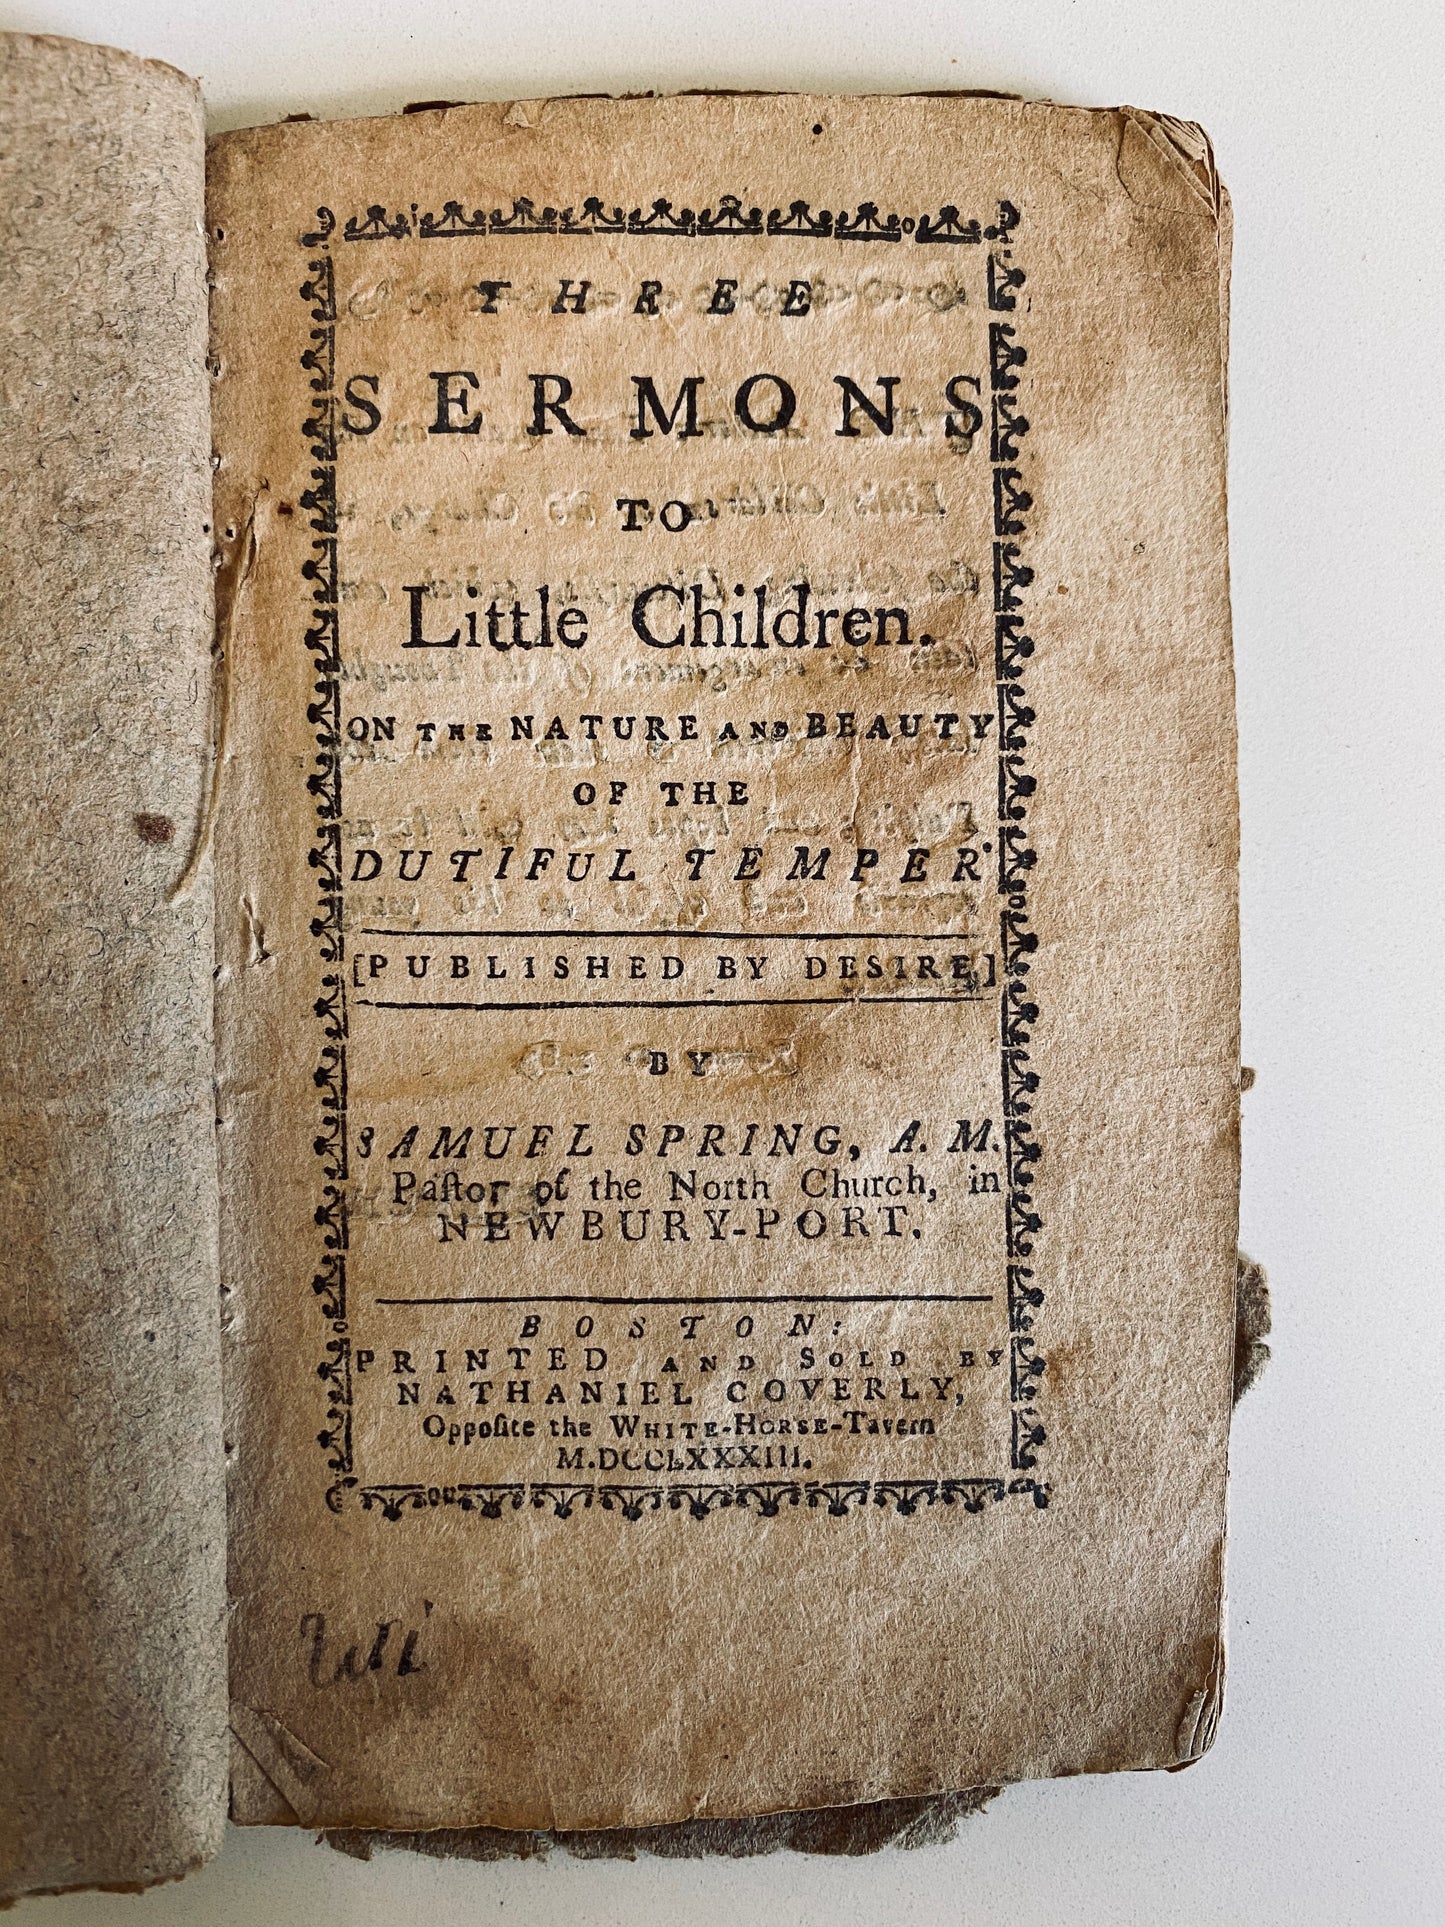 THREE
SERMONS
TO
Little Children.
ON THE NATURE AND BEAUTY
OF THE
DUTIFUL TEMPER.
[PUBLISHED BY DESIRE.]
BY
SAMUEL SPRING, A. M.
Paſtor of the North Church, in
NEWBURY-PORT.
BOSTON:
PRINTED AND SOLD BY
NATHANIEL COVERLY,
Oppoſite the WHITE-HORSE-Tavern
M.DCCLXXXIII.